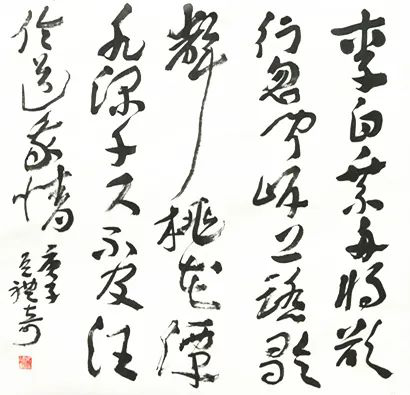 李白乘舟将欲
行忽闻岸上踏歌
聲桃花潭
水深千尺不及汪
伦送我情
庚子
吴禮奇